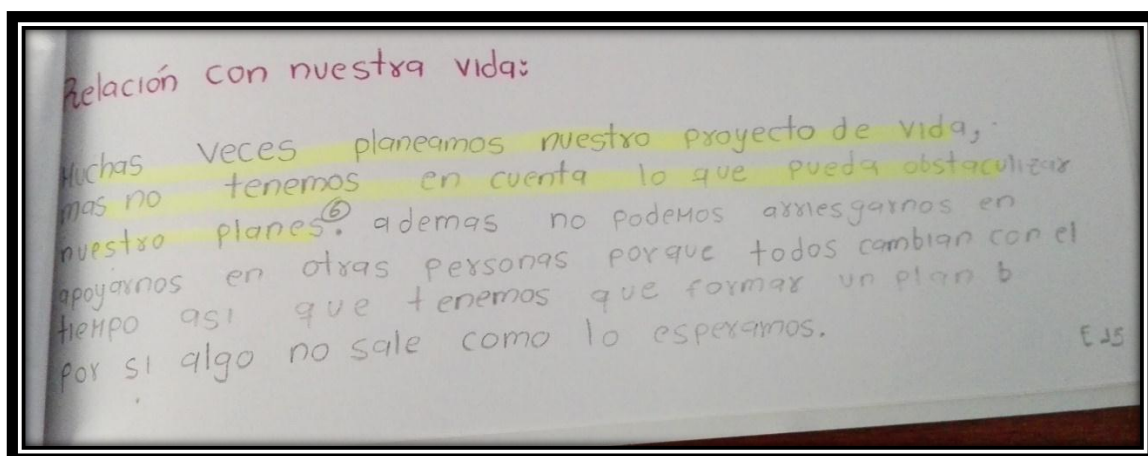 Relación con nuestra vida:
Muchas veces planeamos nuestro proyecto de vida,
mas no tenemos en cuenta lo que pueda obstaculizar
nuestro planes. ⑥ ademas no podemos arriesgarnos en
apoyarnos en otras personas porque todos cambian con el
tiempo asi que tenemos que formar un plan b
por si algo no sale como lo esperamos.
E25